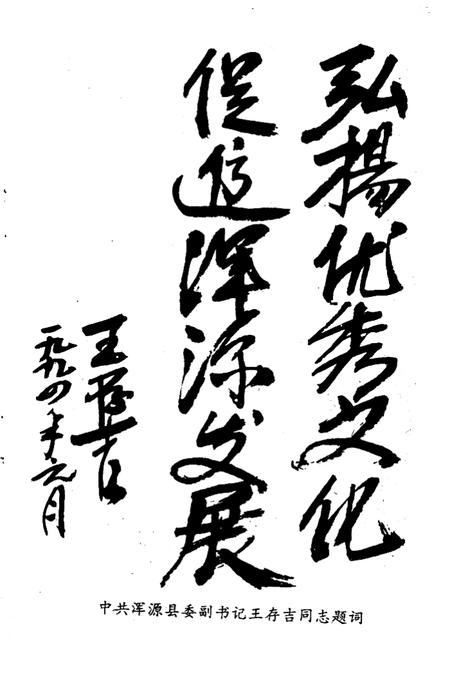 弘揚优秀文化
促進浑源发展
王存吉
一九九四年六月
中共浑源县委副书记王存吉同志题词